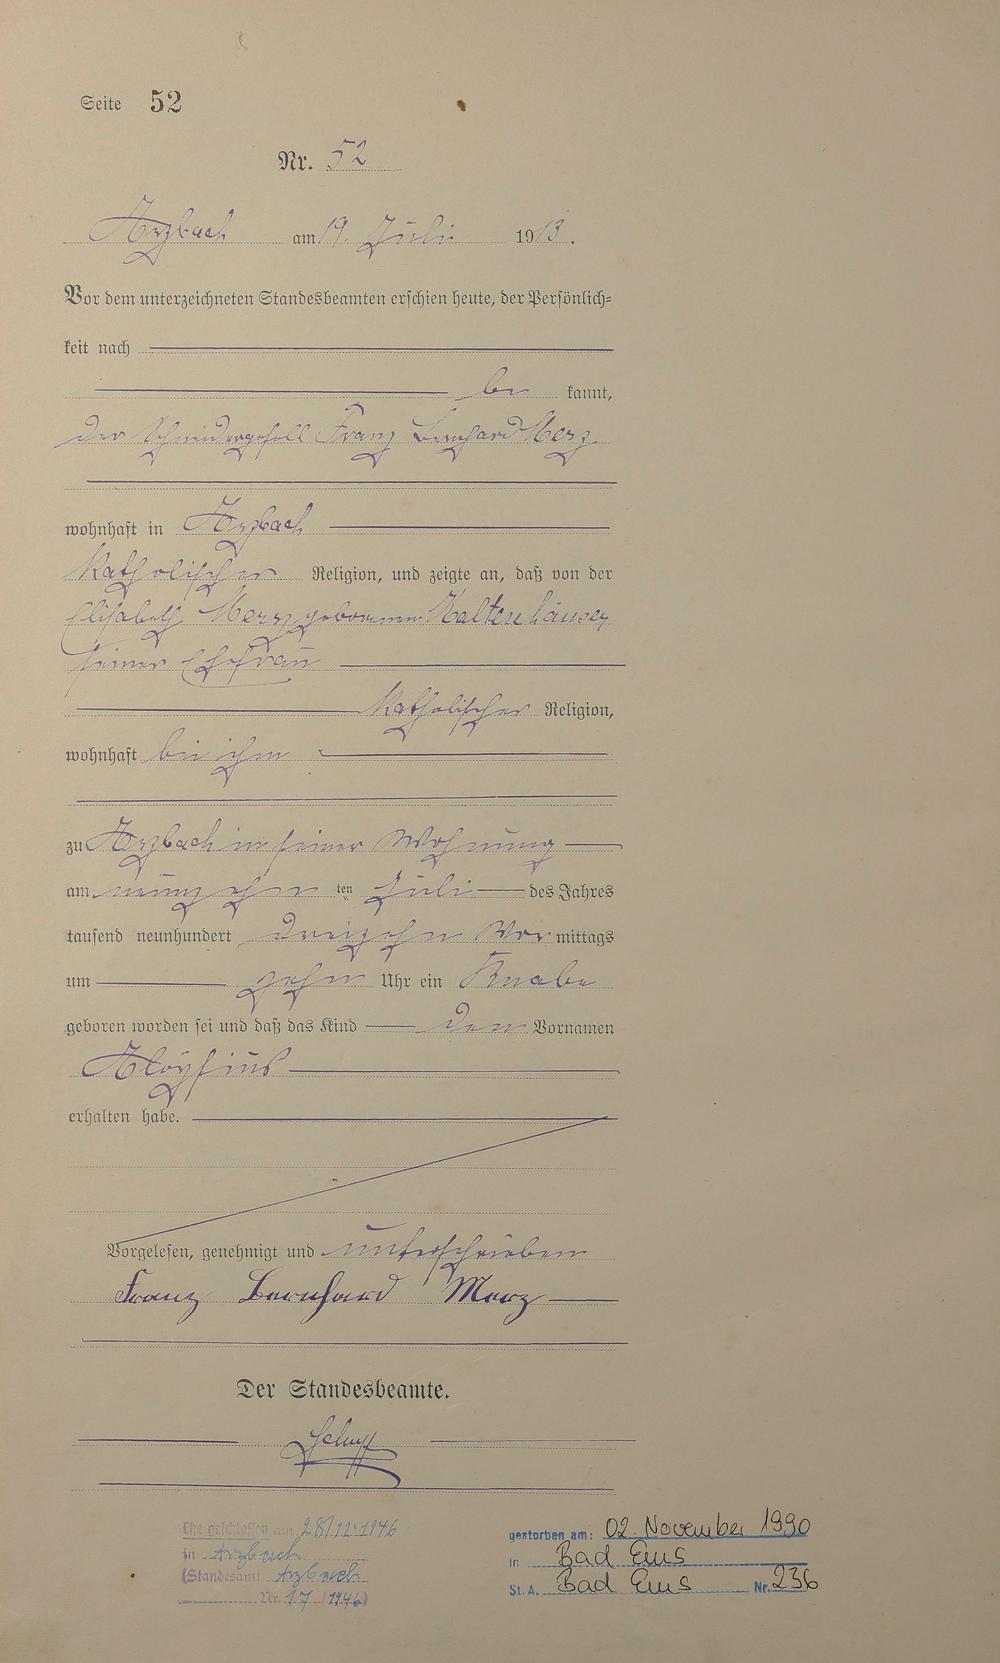 Seite 52
Nr. 52
Arzbach am 19. Juli 1913.
Vor dem unterzeichneten Standesbeamten erschien heute, der Persönlich-
keit nach
be kannt,
der Schneidergesell Franz Bernhard Merz
wohnhaft in Arzbach
katholischer Religion, und zeigte an, daß von der
Elisabeth Merz geborenen Kaltenhäuser
seiner Ehefrau
katholischer Religion,
wohnhaft bei ihm
zu Arzbach in seiner Wohnung
am neunzehn ten Juli des Jahres
tausend neunhundert dreizehn Vor mittags
um zehn Uhr ein Knabe
geboren worden sei und daß das Kind den Vornamen
Aloysius
erhalten habe.
Vorgelesen, genehmigt und unterschrieben
Franz Bernhard Merz
Der Standesbeamte.
Ehe geschlossen am 28.12.1946
in Arzbach
(Standesamt Arzbach
Nr. 17 (1946)
gestorben am: 02. November 1990
in Bad Ems
St. A. Bad Ems Nr. 236